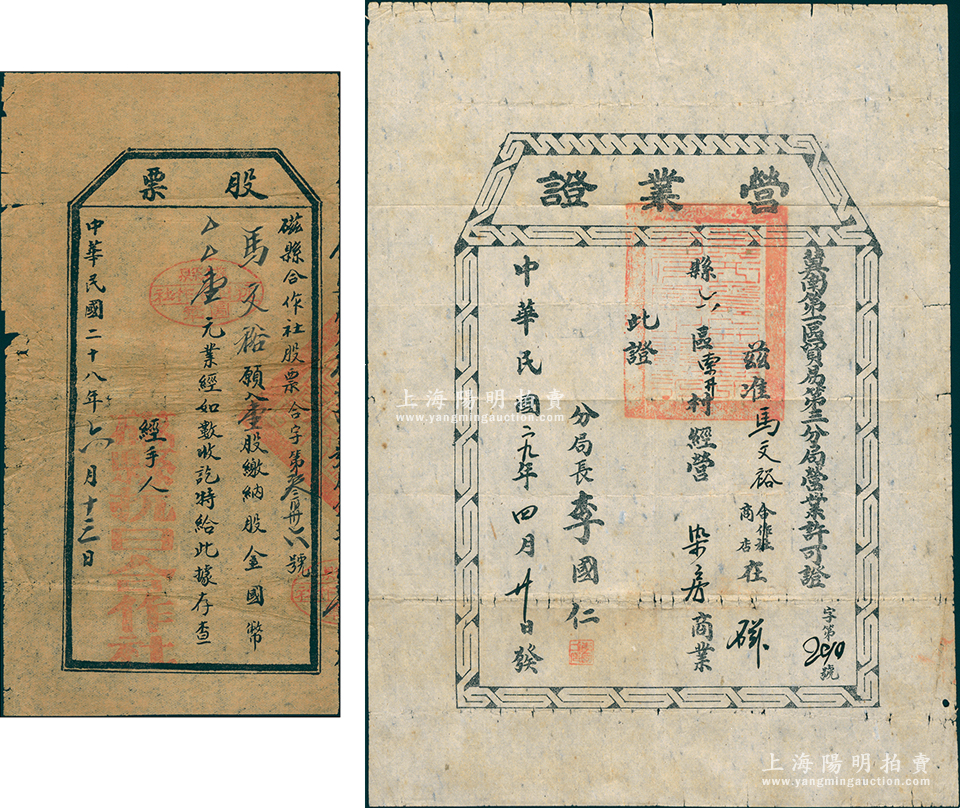 股票
磁縣合作社股票合字第叁 號
馬文裕願入壹股繳納股金國幣
壹元業經如數收訖特給此據存查
經手人
中華民國二十八年 月十三日
合作社
營業證
冀南第一區貿易第三分局營業許可證
字第 號
茲准馬文裕合作社商店在磁
縣六區東 村經營染房商業
此證
分局長李國仁
中華民國廿九年四月廿日發
上海陽明拍賣
www.yangmingauction.com
上海陽明拍賣
www.yangmingauction.com